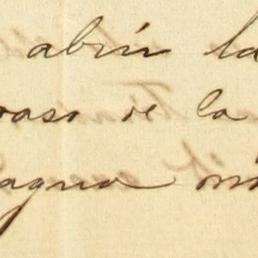 abrir la
vaso de la
agua